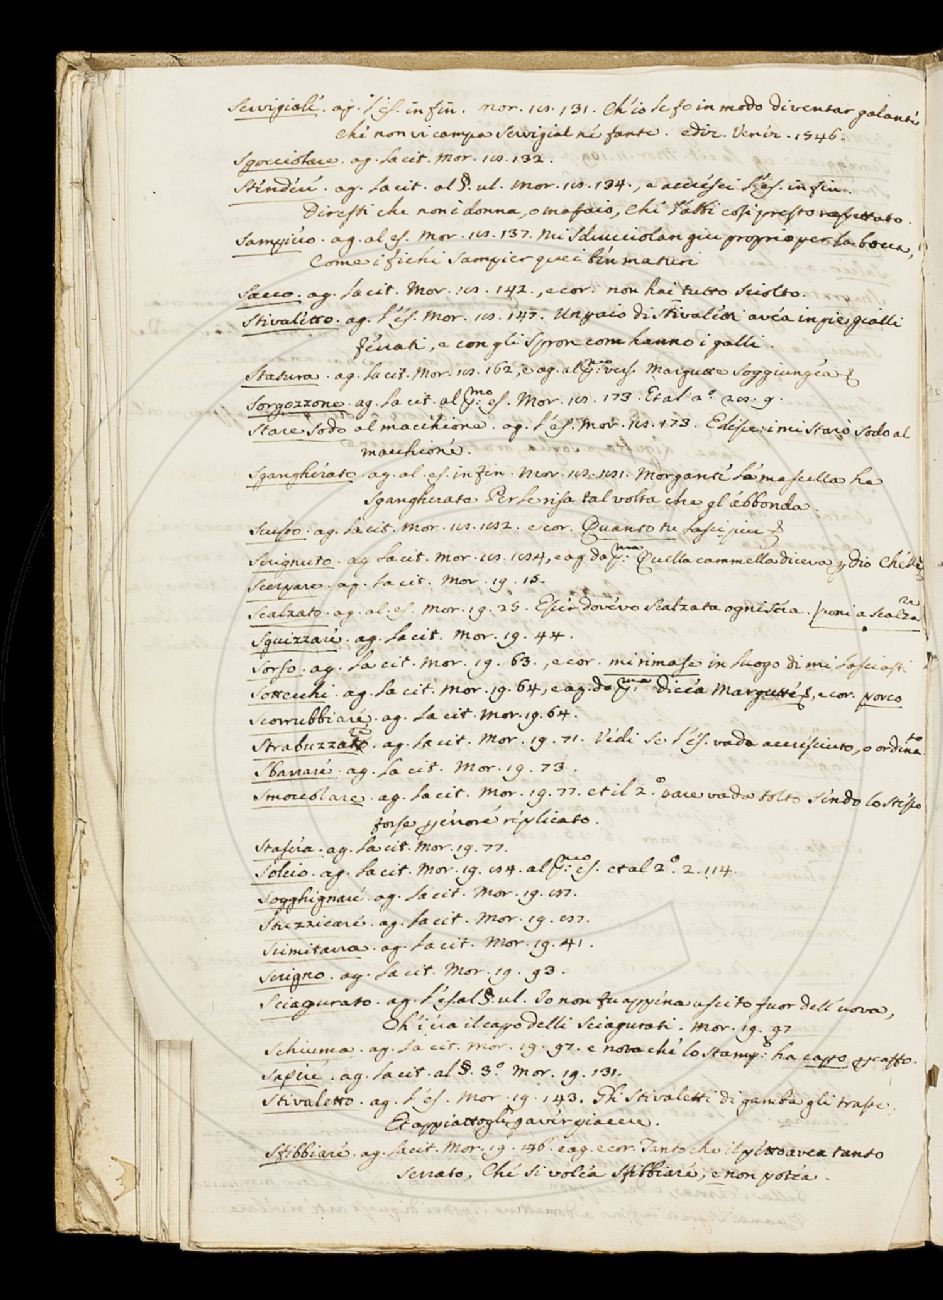 Servigiale. ag. l'es. in fin. Mor. 18. 131. Ch'io le fo in modo diventar galante
Che non vi campa servigial nè fante. ediz. Veniz. 1546.
Sgocciolare. ag. la cit. Mor. 18. 132.
al §. ul. Mor. 18. 134., e accresci l'es. in fin.
Diresti che non è donna, o massaio, Chi l'abbi così presto rassettato.
Sampiero. ag. al es. Mor. 18. 137. Mi sdrucciolan giù proprio per la bocca,
Come i fichi sampier quei ben maturi
Sacco. ag. la cit. Mor. 18. 142., e cor. non hai tutto sciolto.
Stivaletto. ag. l'es. Mor. 18. 147. Un paio di stivalett' avea in piè gialli
Ferrati, e con gli spron com hanno i galli.
Statura. ag. la cit. Mor. 18. 162, e ag. al pmo. vers. Margutte soggiungea &
Sorgozzone. ag. la cit. al pmo. es. Mor. 18. 173. Et al 2°. 28. 9.
Stare sodo al macchione. ag. l'es. Mor. 18. 173. E disse: i mi starò sodo al
macchione.
Sgangherato. ag. al es. in fin. Mor. 18. 181. Morgante la mascella ha
sgangherata Per le risa talvolta che gl'abbonda.
ag. la cit. Mor. 18. 182. e cor. Quanto tu lasci più &
Scrignuto. ag. la cit. Mor. 18. 184, e ag. da pma: Quella cammella diceva p dio
Scerpare. ag. la cit. Mor. 19. 15.
Scalzato. ag. al es. Mor. 19. 25. Esser dovevo scalzata ogni sera. poni a scalzare
Squizzare. ag. la cit. Mor. 19. 44.
Sorso. ag. la cit. Mor. 19. 63., e cor. mi rimase in luogo di mi lasciasti.
Sottecchi. ag. la cit. Mor. 19. 64, e ag. da pma: dicea Margutte &, e cor. porco
Scorrubbiare. ag. la cit. Mor. 19. 64.
Strabuzzare. ag. la cit. Mor. 19. 71. Vedi se l'es. vada accresciuto, o ordinato
Sbarrare. ag. la cit. Mor. 19. 73.
Smoccolare. ag. la cit. Mor. 19. 77. et il 2°. pare vada tolto sendo lo stesso
forse p errore replicato.
ag. la cit. Mor. 19. 77.
Solcio. ag. la cit. Mor. 19. 84. al pmo: es. et al 2°. 2. 114.
Sogghignare. ag. la cit. Mor. 19. 87.
Stuzzicare. ag. la cit. Mor. 19. 87.
Scimitarra. ag. la cit. Mor. 19. 41.
Scrigno. ag. la cit. Mor. 19. 93.
Sciagurato. ag. l'es. al §. ul. Io non fu appena uscito fuor dell'uova,
Ch'i era il capo delli sciagurati. Mor. 19. 97
Schiuma. ag. la cit. Mor. 19. 97. e nota che lo Stamp: ha cappo p caffo.
Sapere. ag. la cit. al §. 3°. Mor. 19. 131.
Stivaletto. ag. l'es. Mor. 19. 143. Gli stivaletti di gamba gli trasse,
Et appiattogli p aver piacere.
Sfibbiare. ag. la cit. Mor. 19. 146. e ag. e cor. Tanto che il petto avea tanto
serrato, Che si volea sfibbiare, e non potea.